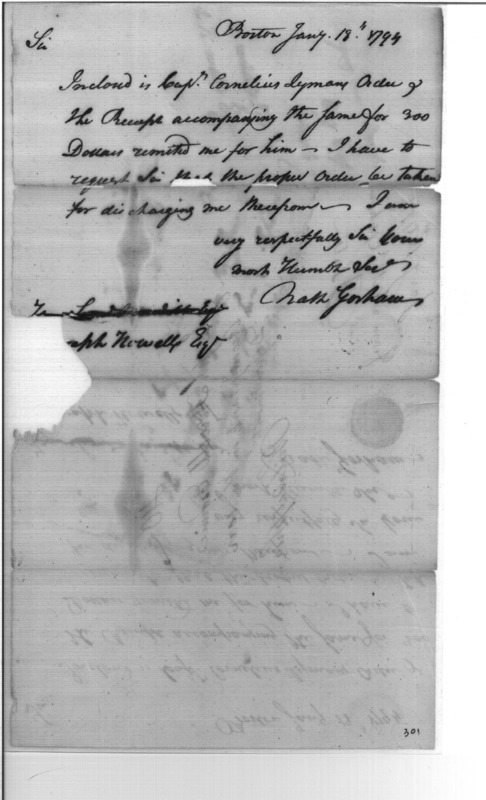 Boston Jany. 18th 1794
Sir
Inclosed is Capt. Cornelius Lymans Order &
the Receipt accompanying the same for 300
Dollars remitted me for him – I have to
request Sir that the proper order be taken
for discharging me therefrom – I am
very respectfully Sir Your
most Humble Servt
Nath Gorham
eph Howell Esqr
301